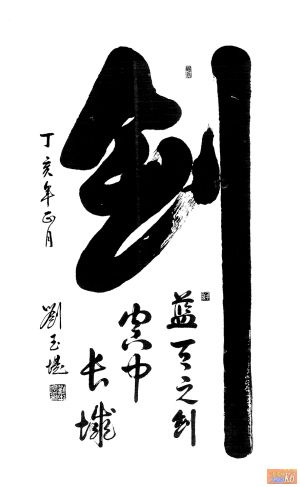 剑
藍天之剑
空中
长城
丁亥年正月
劉玉堤